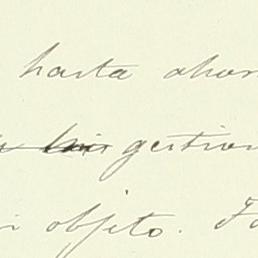 hasta ahor
gestion
objeto.